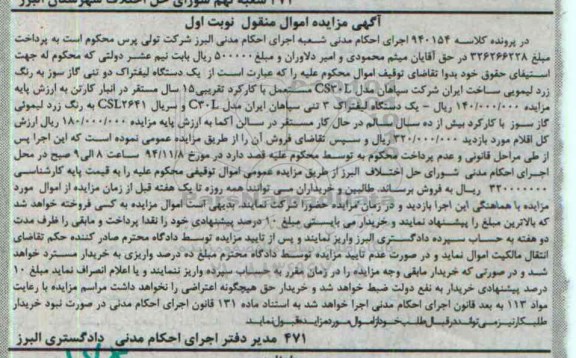 ۴۷۱ شعبه نهم شورای حل اختلاف شهرستان البرز
آگهی مزایده اموال منقول نوبت اول
در پرونده کلاسه ۹۴۰۱۵۴ اجرای احکام مدنی شعبه اجرای احکام مدنی البرز شرکت تولی پرس محکوم است به پرداخت
مبلغ ۳۲۶۲۶۶۲۲۸ ریال در حق آقایان میثم محمودی و امیر دلاوران و مبلغ ۵۰۰۰۰۰۰ ریال بابت نیم عشر دولتی که محکوم له جهت
استیفای حقوق خود بدوا تقاضای توقیف اموال محکوم علیه را که عبارت است از یک دستگاه لیفتراک دو تنی گاز سوز به رنگ
زرد لیمویی ساخت ایران شرکت سپاهان مدل CS۳۰L مستعمل با کارکرد تقریبی ۱۵ سال مستقر در انبار کارتن به ارزش پایه
مزایده ۱۴۰/۰۰۰/۰۰۰ ریال - یک دستگاه لیفتراک ۳ تنی سپاهان ایران مدل C۳۰L و سریال CSL۲۶۴۱ به رنگ زرد لیمویی
گاز سوز با کارکرد بیش از ده سال سالم در حال کار مستقر در سالن آکما به ارزش پایه مزایده ۱۸۰/۰۰۰/۰۰۰ ریال ارزش
کل اقلام مورد بازدید ۳۲۰/۰۰۰/۰۰۰ ریال و سپس تقاضای فروش آن را از طریق مزایده عمومی نموده است که این اجرا پس
از طی مراحل قانونی و عدم پرداخت محکوم به توسط محکوم علیه قصد دارد در مورخ ۹۴/۱۱/۸ ساعت ۸ الی ۹ صبح در محل
اجرای احکام مدنی شورای حل اختلاف البرز از طریق مزایده عمومی اموال توقیفی محکوم علیه را به قیمت پایه کارشناسی
۳۲۰۰۰۰۰۰۰ ریال به فروش برساند. طالبین و خریداران می توانند همه روزه تا یک هفته قبل از زمان مزایده از اموال مورد
مزایده با هماهنگی این اجرا بازدید و در زمان مزایده حضورا شرکت نمایند بدیهی است اموال مزایده به کسی فروخته خواهد شد
که بالاترین مبلغ را پیشنهاد نمایند و خریدار می بایستی مبلغ ۱۰ درصد پیشنهادی خود را نقدا پرداخت و مابقی را ظرف مدت
دو هفته به حساب سپرده دادگستری البرز واریز نمایند و پس از تایید مزایده توسط دادگاه محترم صادر کننده حکم تقاضای
انتقال مالکیت اموال نماید و در صورت عدم تایید مزایده توسط دادگاه محترم مبلغ ده درصد واریزی به خریدار مسترد خواهد
شد و در صورتی که خریدار مابقی وجه مزایده را در زمان مقرر به حساب سپرده واریز ننمایند و یا اعلام انصراف نماید مبلغ ۱۰
درصد پیشنهادی خریدار به نفع دولت ضبط خواهد شد و خریدار حق هیچگونه اعتراضی را نخواهد داشت مراسم مزایده با رعایت
مواد ۱۱۳ به بعد قانون اجرای احکام مدنی اجرا خواهد شد به استناد ماده ۱۳۱ قانون اجرای احکام مدنی در صورت نبود خریدار
طلبکار نیز می تواند در قبال طلب خود از اموال مورد مزایده قبول نمایند.
۴۷۱ مدیر دفتر اجرای احکام مدنی دادگستری البرز